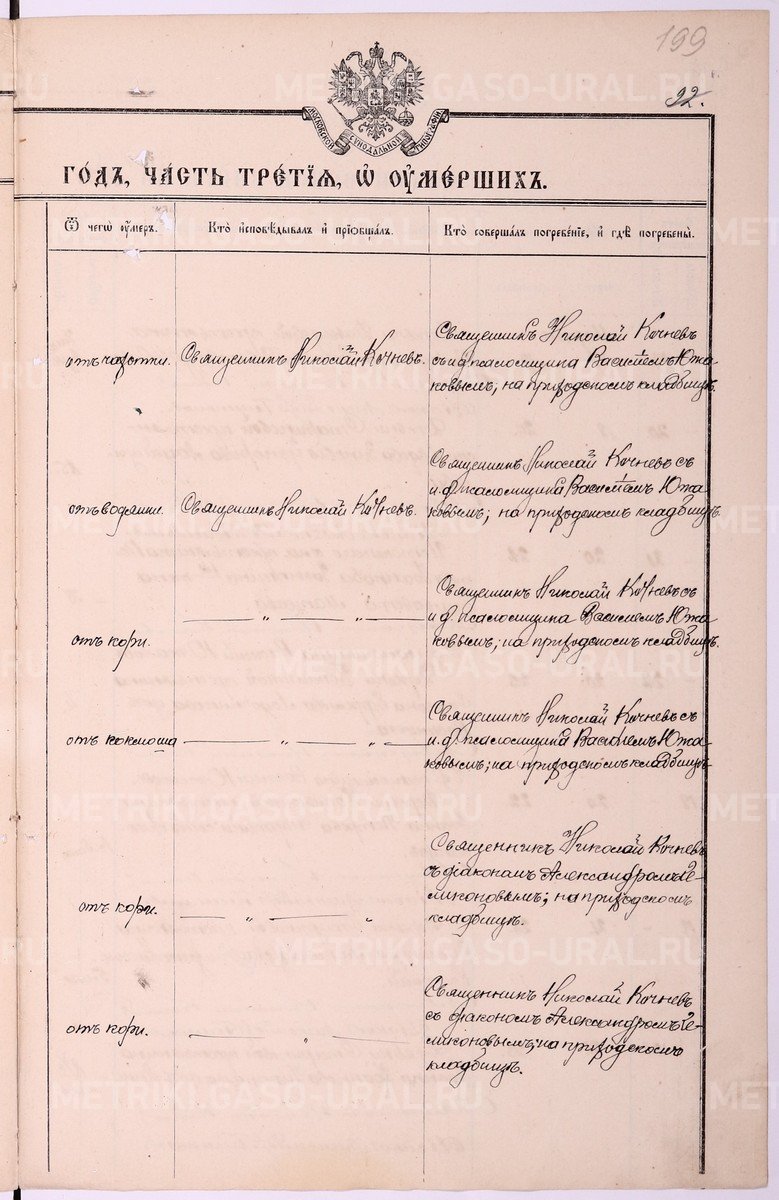 199
22.
МОСКОВСКОЙ СѴНОДАЛЬНОЙ ТИПОГРАФІИ
ГОДЪ, ЧАСТЬ ТРЕТІЯ, Ѡ ОУМЕРШИХЪ.
Ѿ чегѡ оумеръ.
Кто исповѣдывалъ и пріобщалъ.
Кто совершалъ погребеніе, и гдѣ погребены.
отъ чахотки.
Священникъ Николай Кочневъ.
Священникъ Николай Кочневъ
съ и.д. псаломщика Василіемъ Южа-
ковымъ; на приходскомъ кладбищѣ.
отъ водянки.
Священникъ Николай Кочневъ.
Священникъ Николай Кочневъ съ
и.д. псаломщика Василіемъ Южа-
ковымъ; на приходскомъ кладбищѣ.
отъ кори.
— „ — „ —
Священникъ Николай Кочневъ съ
и д. псаломщика Василіемъ Южа-
ковымъ; на приходскомъ кладбищѣ.
отъ коклюша
— „ — „ —
Священникъ Николай Кочневъ съ
и.д. псаломщика Василіемъ Южа-
ковымъ; на приходскомъ кладбищѣ
отъ кори.
— „ — „
Священникъ Николай Кочневъ
съ діакономъ Александромъ
на приходскомъ
кладбищѣ.
отъ кори.
— „ —
Священникъ Николай Кочневъ
съ діакономъ Александромъ
на приходскомъ
кладбищѣ.
METRIKI.GASO-URAL.RU